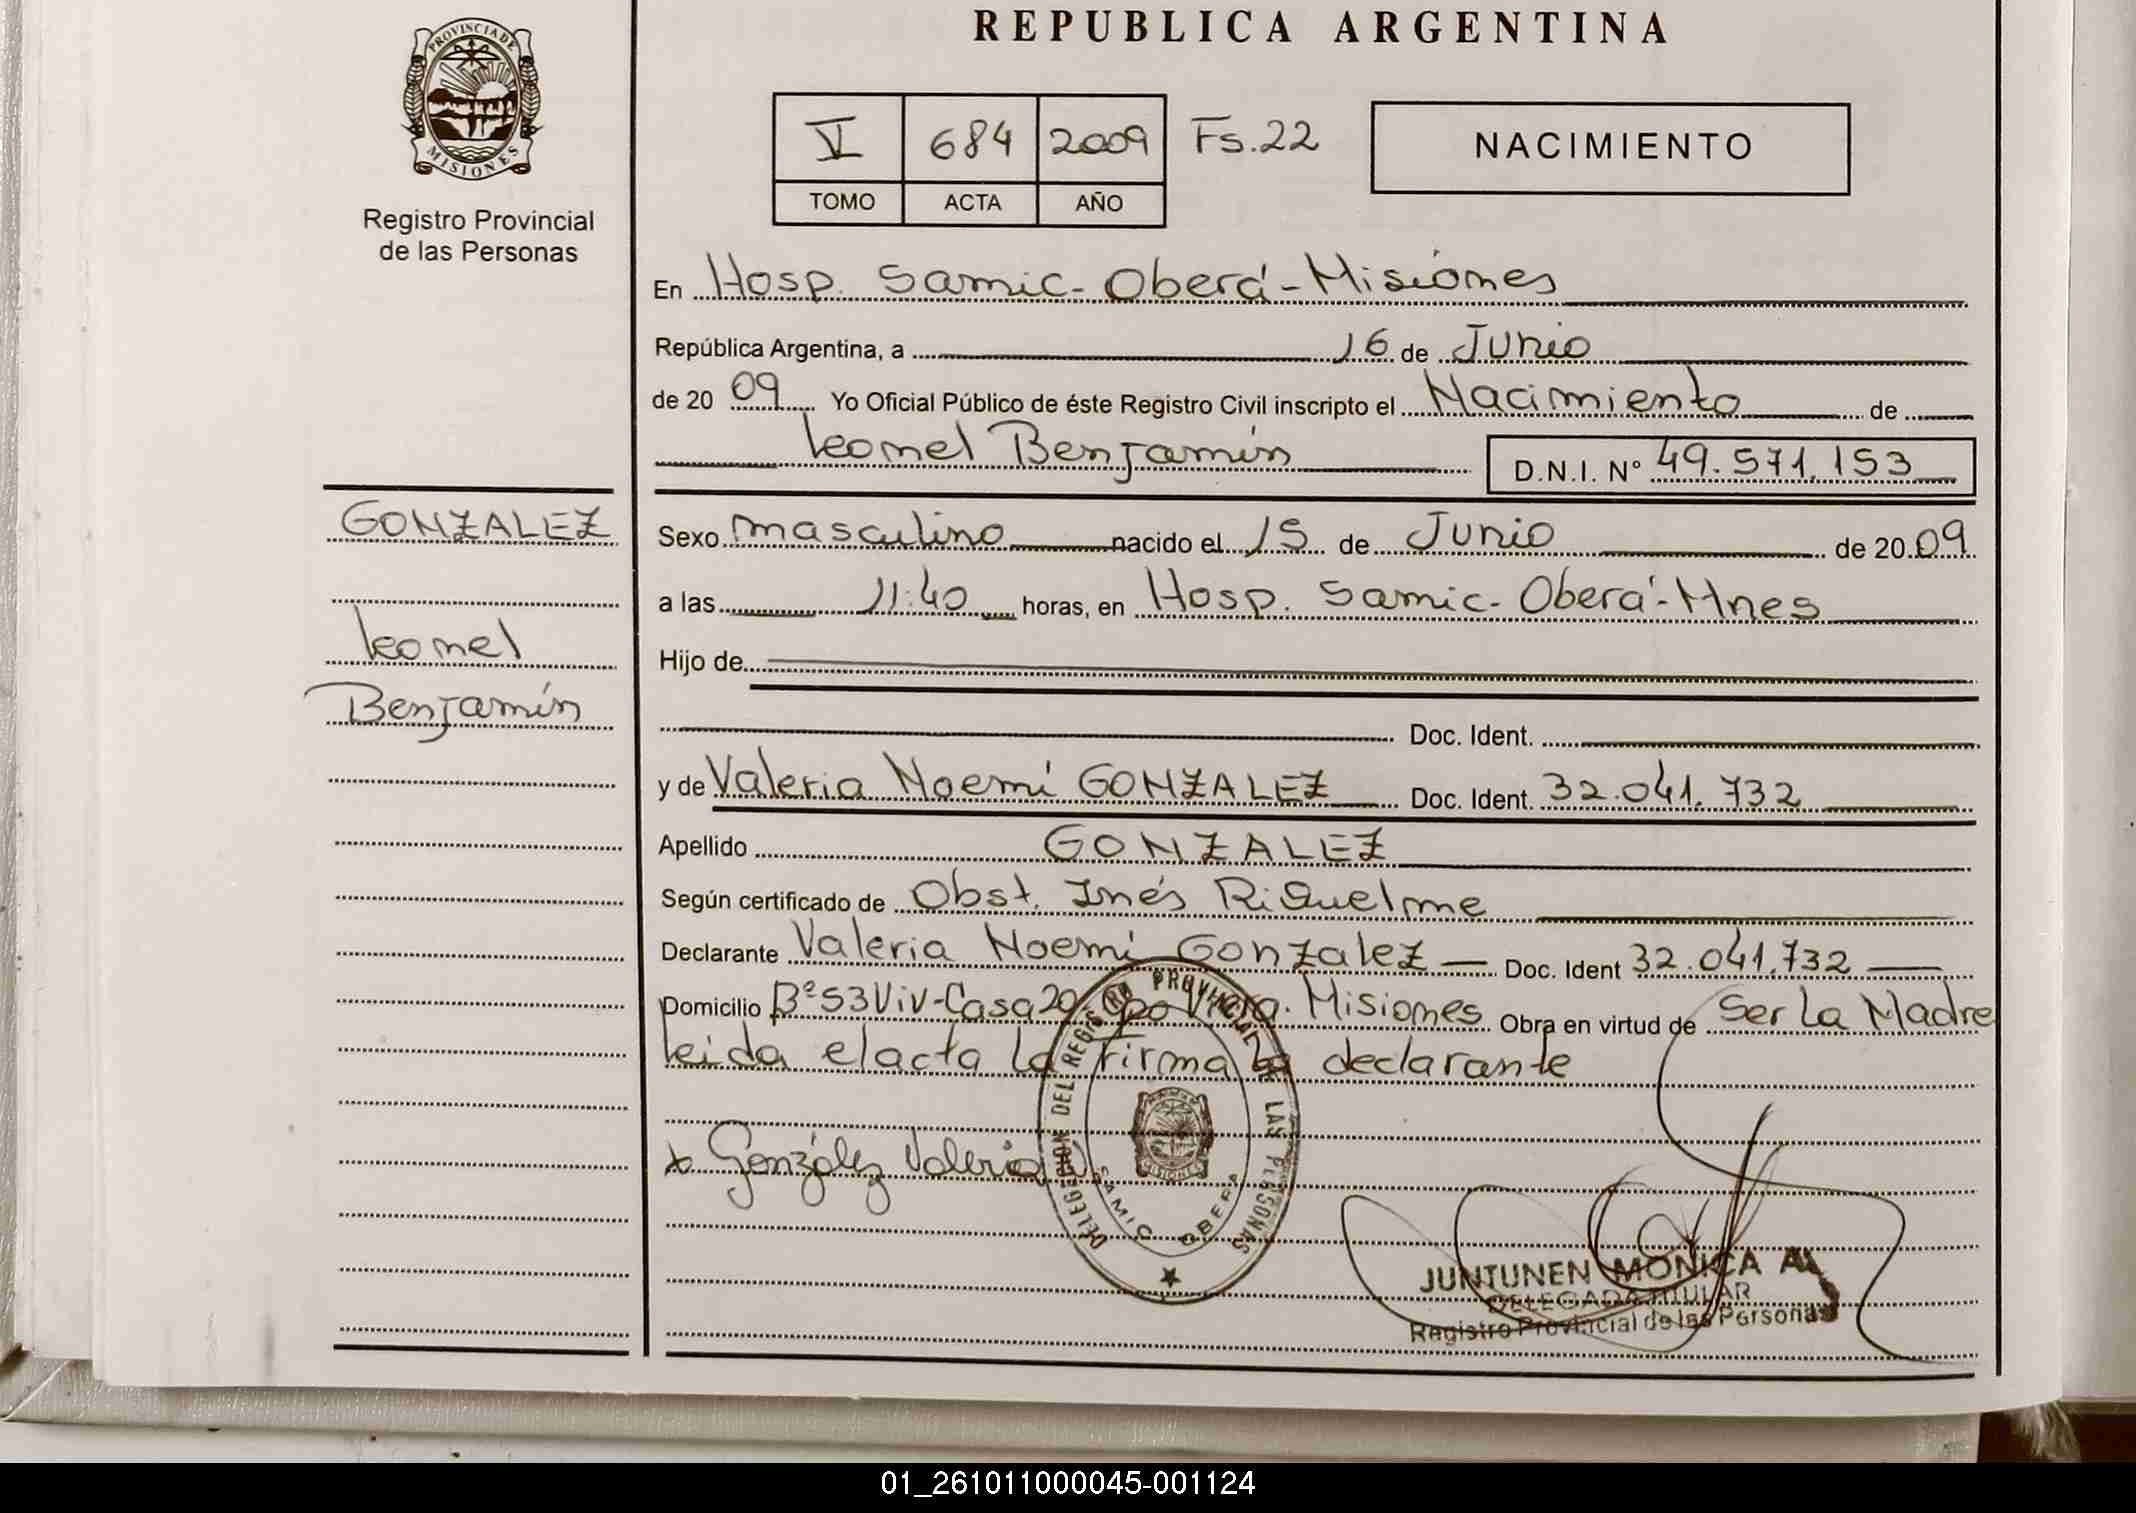 REPUBLICA ARGENTINA
PROVINCIA DE MISIONES
Registro Provincial
de las Personas
V 684 2009 Fs.22
TOMO ACTA AÑO
NACIMIENTO
En Hosp. Samic - Oberá - Misiones
República Argentina, a 16 de Junio
de 20 09 Yo Oficial Público de éste Registro Civil inscripto el Nacimiento de
Leonel Benjamín D.N.I. Nº 49.571.153
GONZALEZ
Leonel
Benjamín
Sexo masculino nacido el 15 de Junio de 20 09
a las 11:40 horas, en Hosp. Samic - Oberá - Mnes
Hijo de
Doc. Ident.
y de Valeria Noemí GONZALEZ Doc. Ident. 32.041.732
Apellido GONZALEZ
Según certificado de Obst. Inés Riquelme
Declarante Valeria Noemí Gonzalez Doc. Ident 32.041.732
Domicilio Bº 53 Viv - Casa 20 Cpo Viera. Misiones Obra en virtud de Ser La Madre
Leida el acta La Firma La declarante
x González Valeria
DELEGACION DEL REGISTRO PROVINCIAL DE LAS PERSONAS
SAMIC OBERA
JUNTUNEN MONICA A.
DELEGADA TITULAR
Registro Provincial de las Personas
01_261011000045-001124